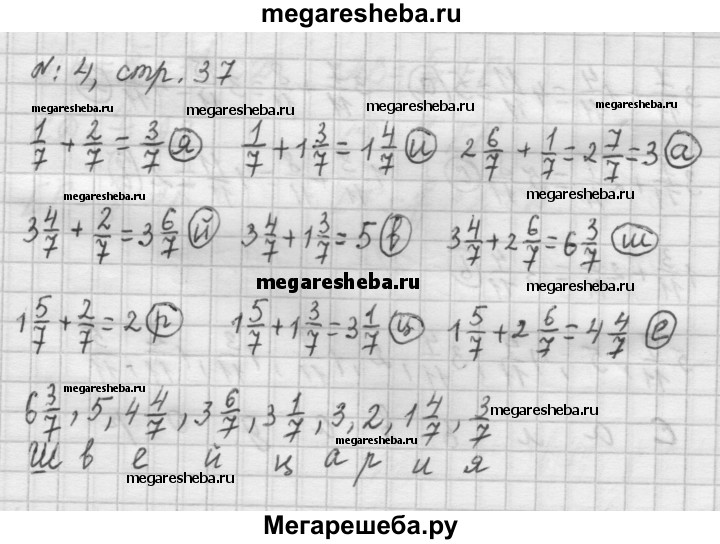 megaresheba.ru
№: 4, стр. 37
megaresheba.ru megaresheba.ru megaresheba.ru megaresheba.ru
1/7 + 2/7 = 3/7 я 1/7 + 1 3/7 = 1 4/7 и 2 6/7 + 1/7 = 2 7/7 = 3 а
megaresheba.ru megaresheba.ru
3 4/7 + 2/7 = 3 6/7 й 3 4/7 + 1 3/7 = 5 в 3 4/7 + 2 6/7 = 6 3/7 ш
megaresheba.ru megaresheba.ru
1 5/7 + 2/7 = 2 р 1 5/7 + 1 3/7 = 3 1/7 ц 1 5/7 + 2 6/7 = 4 4/7 е
megaresheba.ru
6 3/7, 5, 4 4/7, 3 6/7, 3 1/7, 3, 2, 1 4/7, 3/7
megaresheba.ru megaresheba.ru
Ш в е й ц а р и я
megaresheba.ru megaresheba.ru
Мегарешеба.ру